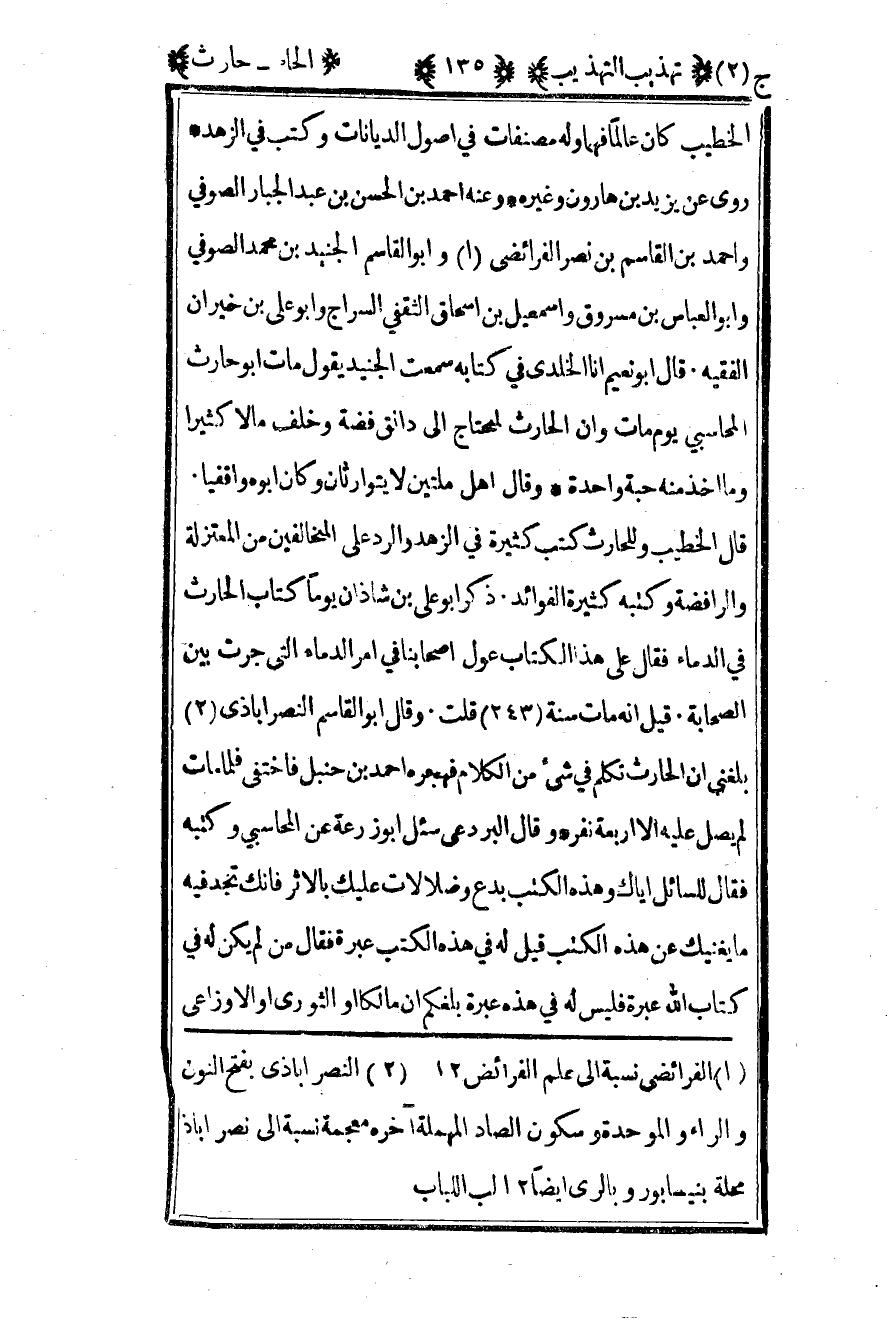 ج (٢) تهذيب التهذيب ١٣٥ الحاء - حارث
الخطيب كان عالمًا فهما وله مصنفات في اصول الديانات وكتب في الزهد *
روى عن يزيد بن هارون وغيره * وعنه احمد بن الحسن بن عبد الجبار الصوفي
واحمد بن القاسم بن نصر الفرائضى (١) و ابو القاسم الجنيد بن محمد الصوفي
وابو العباس بن مسروق واسمعيل بن اسحاق الثقفي السراج وابو على بن خيران
الفقيه · قال ابو نعيم انا الخلدى في كتابه سمعت الجنيد يقول مات ابو حارث
المحاسبي يوم مات وان الحارث لمحتاج الى دانق فضة وخلف مالا كثيرا
وما اخذ منه حبة واحدة * وقال اهل ملتين لا يتوارثان وكان ابوه واقفيا ·
قال الخطيب وللحارث كتب كثيرة في الزهد والرد على المخالفين من المعتزلة
والرافضة وكتبه كثيرة الفوائد · ذكر ابو على بن شاذان يومًا كتاب الحارث
في الدماء فقال على هذا الكتاب عول اصحابنا في امر الدماء التي جرت بين
الصحابة · قيل انه مات سنة (٢٤٣) قلت · وقال ابو القاسم النصر اباذى (٢)
بلغني ان الحارث تكلم في شئ من الكلام فهجره احمد بن حنبل فاختفى فلما مات
لم يصل عليه الا اربعة نفر * و قال البردعى سئل ابو زرعة عن المحاسبي وكتبه
فقال للسائل اياك وهذه الكتب بدع وضلالات عليك بالاثر فانك تجد فيه
ما يغنيك عن هذه الكتب قيل له في هذه الكتب عبرة فقال من لم يكن له في
كتاب الله عبرة فليس له في هذه عبرة بلغكم ان مالكا او الثورى او الاوزاعى
(١) الفرائضى نسبة الى علم الفرائض ١٢ (٢) النصر اباذى بفتح النون
و الراء و الموحدة و سكون الصاد المهملة آخره معجمة نسبة الى نصر اباذ
محلة بنيسابور و بالرى ايضًا ١٢ لب اللباب